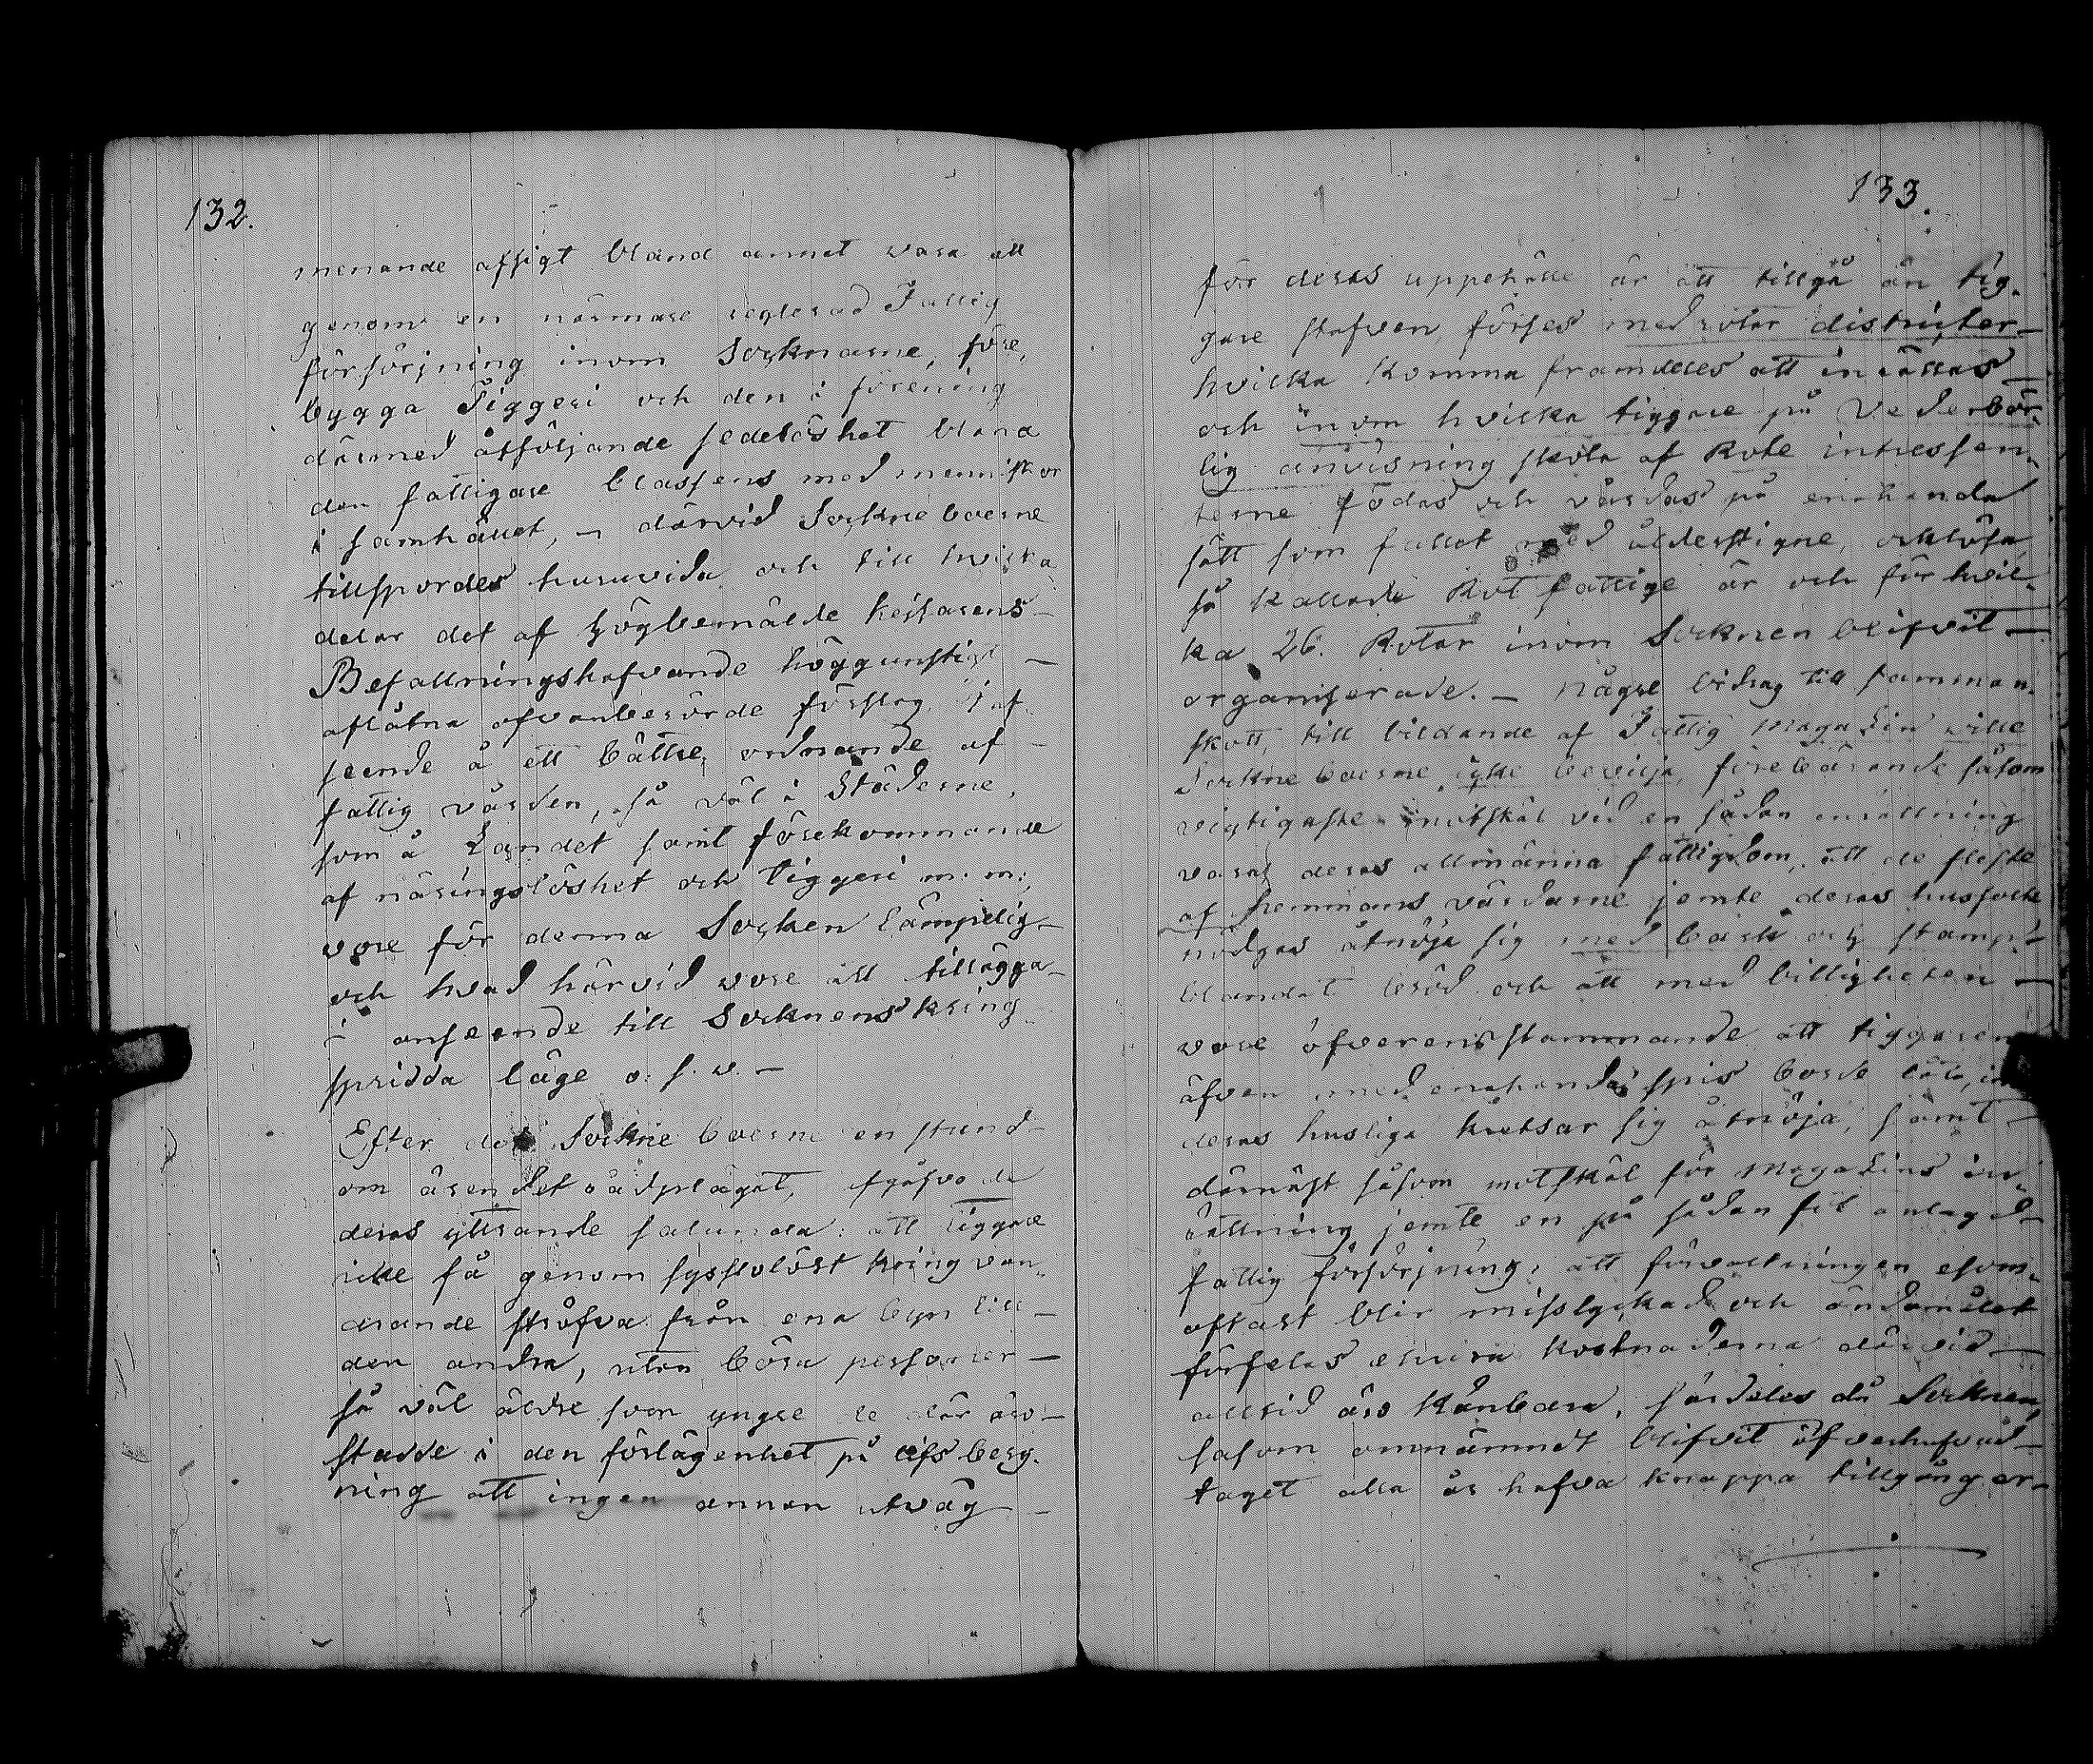 132.
menande afsigt bland annat vara att
genom en närmare reglerad Fattig
försörjning inom Socknarne, före,
bygga Tiggeri och den i förening
därmed åtföljande sedeslöshet bland
den fattigare Classens med menniskor
i samhället, – därvid Sockneboerne
tillspordes huruvida och till hvilka
delar det af högbemälde Kejsarens
Befallningshafvande höggunstigt –
aflåtna ofvanberörde förslag i af
seende å ett bättre ordnande af –
fattig vården, så väl i Städerne,
som å Landet samt förekommande
af näringslöshet och tiggeri m. m.,
vore för denna Socken lämpelig –
och hvad härvid vore att tillägga –
i anseende till Socknens kring
spridda läge o. s. v. –
Efter det Sockneboerne en stund –
om ärendet rådplägat, afgåfvo de
deras yttrande sålunda: att tiggare
icke få genom sysslolöst kring van-
drande ströfva från ena byn till –
den andra, utan böra personer –
så väl äldre som yngre de där äro –
stadde i den förlägenhet på lifsberg.
ning att ingen annan utväg –
133.
för deras uppehälle är att tillgå än tig-
gare stafven, förses med rotar distrikter –
hvilka komma framdeles att inrättas –
och inom hvilka tiggare på Vederbör-
lig anvisning skola af Rote intressen-
terne födas och vårdas på enahanda
sätt som fallet med ålderstigne, orklösa
så kallade Rot fattige är och för hvil-
ka 26. Rotar inom Socknen blifvit –
organiserade. – Någre bidrag till samman-
skott, till bildande af Fattig Magazin ville
Sockneboerne icke bevilja, förebärande såsom
vigtigaste motskäl vid en sådan inrättning
vara deras allmänna fattigdom, att de fleste
af hemmans vårdarne jemte deras husfolk
nödgas åtnöja sig med bark och stamp –
blandat bröd och att med billigheten –
vore öfverensstämmande att tiggaren
äfven med enahanda spis borde
deras husliga kretsar sig åtnöja, samt –
därnäst såsom motskäl för Magazins in-
rättning jemte en på sådan fot anlagd –
fattig försörjning, att förvaltningen esom-
oftast blir misslyckad och ändamålet
förfelas ehuru kostnaderna därvid –
alltid äro kånbara, särdeles då Socknen,
såsom omnämndt blifvit öfverhufvud –
taget alla år hafva knappa tillgångar –